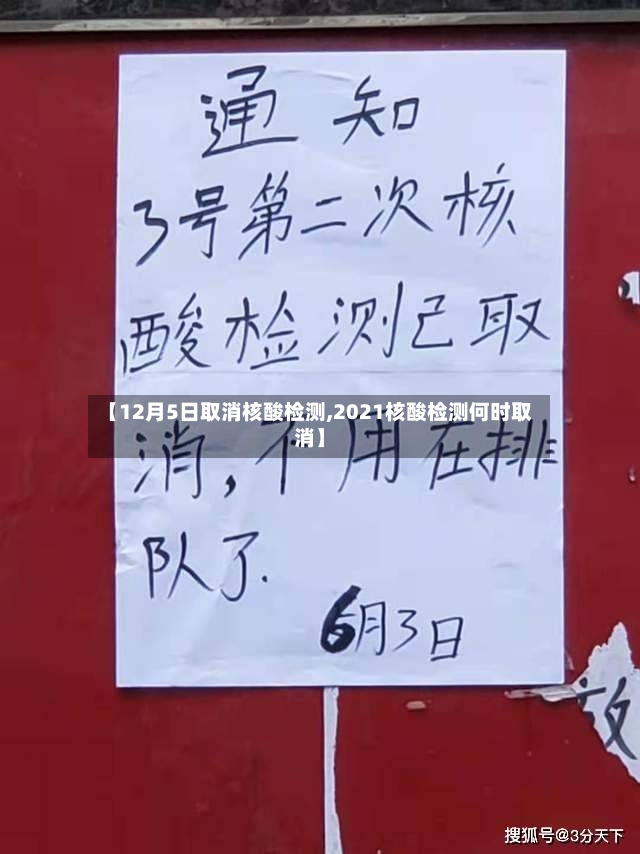 通知
3号第二次核
酸检测已取
【12月5日取消核酸检测,2021核酸检测何时取
消】
消,不用在排
队了.
6月3日
放
搜狐号@3分天下